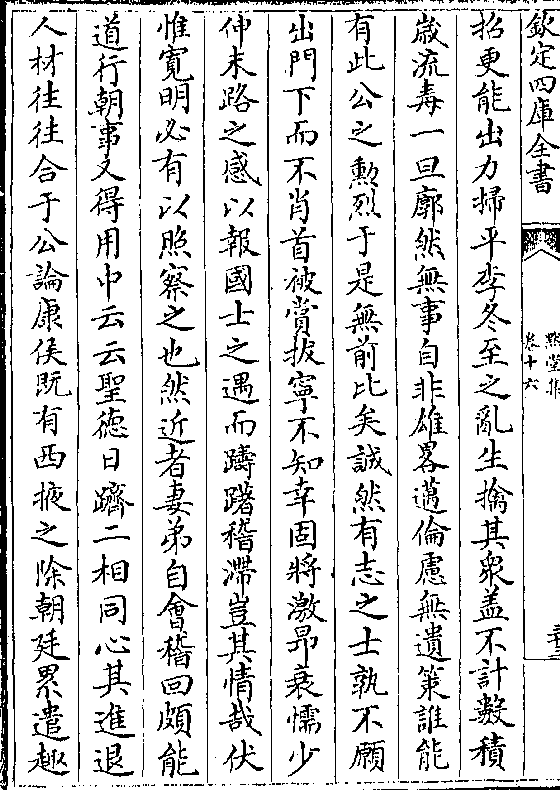 欽定四庫全書
默堂集
卷十六
招更能出力掃平李冬至之亂生擒其衆盖不計數積
嵗流毒一旦廓然無事自非雄畧邁倫慮無遺策誰能
有此公之勲烈于是無前比矣誠然有志之士孰不願
出門下而不肖首被賞拔寧不知幸固將激昻衰懦少
伸末路之感以報國士之遇而躊躇稽滯豈其情哉伏
惟寛明必有以照察之也然近者妻弟自會稽回頗能
道行朝事又得用中云云聖德日躋二相同心其進退
人材往往合于公論康侯既有西掖之除朝廷累遣趣